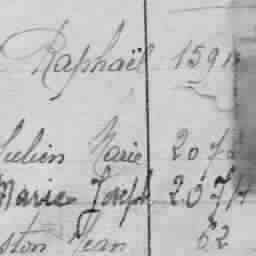 Raphaël 159
Julien Marie 207
Marie Joseph 207
Jean 62